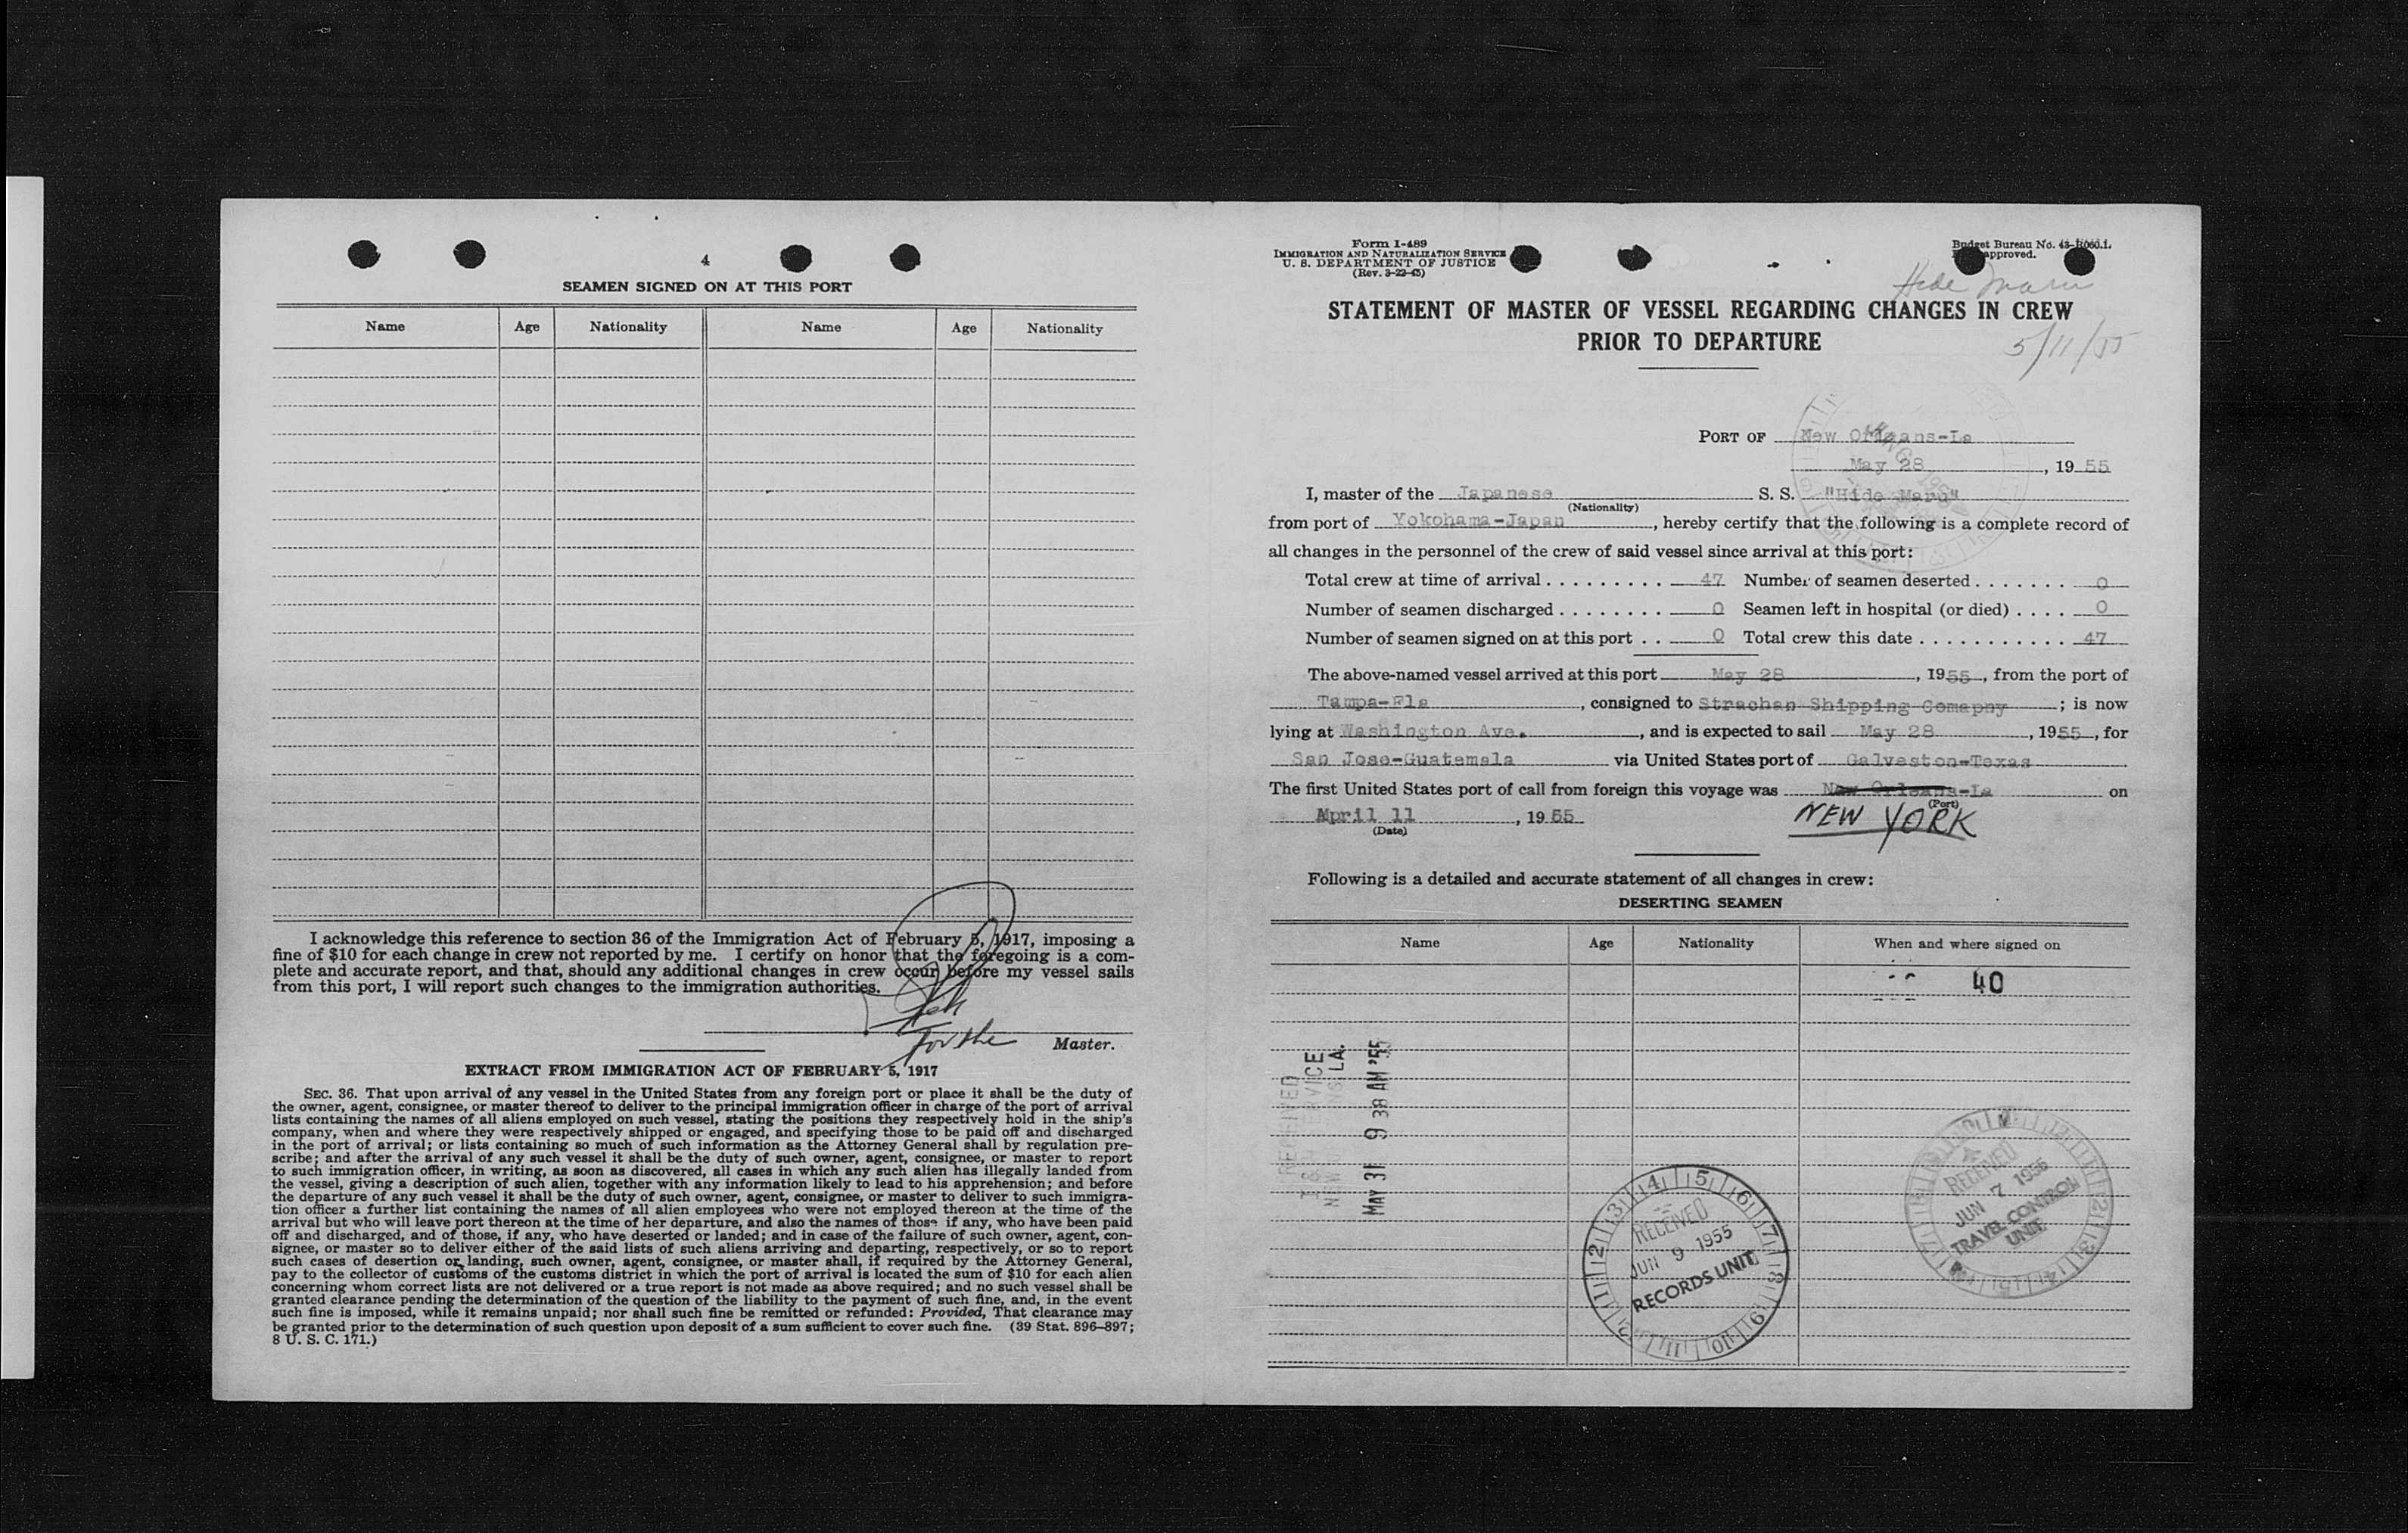 4
SEAMEN SIGNED ON AT THIS PORT
Name Age Nationality Name Age Nationality
I acknowledge this reference to section 36 of the Immigration Act of February 5, 1917, imposing a
fine of $10 for each change in crew not reported by me. I certify on honor that the foregoing is a com-
plete and accurate report, and that, should any additional changes in crew occur before my vessel sails
from this port, I will report such changes to the immigration authorities.
For the Master.
EXTRACT FROM IMMIGRATION ACT OF FEBRUARY 5, 1917
SEC. 36. That upon arrival of any vessel in the United States from any foreign port or place it shall be the duty of
the owner, agent, consignee, or master thereof to deliver to the principal immigration officer in charge of the port of arrival
lists containing the names of all aliens employed on such vessel, stating the positions they respectively hold in the ship's
company, when and where they were respectively shipped or engaged, and specifying those to be paid off and discharged
in the port of arrival; or lists containing so much of such information as the Attorney General shall by regulation pre-
scribe; and after the arrival of any such vessel it shall be the duty of such owner, agent, consignee, or master to report
to such immigration officer, in writing, as soon as discovered, all cases in which any such alien has illegally landed from
the vessel, giving a description of such alien, together with any information likely to lead to his apprehension; and before
the departure of any such vessel it shall be the duty of such owner, agent, consignee, or master to deliver to such immigra-
tion officer a further list containing the names of all alien employees who were not employed thereon at the time of the
arrival but who will leave port thereon at the time of her departure, and also the names of those if any, who have been paid
off and discharged, and of those, if any, who have deserted or landed; and in case of the failure of such owner, agent, con-
signee, or master so to deliver either of the said lists of such aliens arriving and departing, respectively, or so to report
such cases of desertion or landing, such owner, agent, consignee, or master shall, if required by the Attorney General,
pay to the collector of customs of the customs district in which the port of arrival is located the sum of $10 for each alien
concerning whom correct lists are not delivered or a true report is not made as above required; and no such vessel shall be
granted clearance pending the determination of the question of the liability to the payment of such fine, and, in the event
such fine is imposed, while it remains unpaid; nor shall such fine be remitted or refunded: Provided, That clearance may
be granted prior to the determination of such question upon deposit of a sum sufficient to cover such fine. (39 Stat. 896–897;
8 U. S. C. 171.)
Form I-489
IMMIGRATION AND NATURALIZATION SERVICE
U. S. DEPARTMENT OF JUSTICE
(Rev. 3-22-45)
Budget Bureau No. 43-R060.1.
approved.
Hide Maru
STATEMENT OF MASTER OF VESSEL REGARDING CHANGES IN CREW
PRIOR TO DEPARTURE
5/11/55
PORT OF New Orleans-La
May 28, 1955
I, master of the Japanese S. S. "Hide Maru"
(Nationality)
from port of Yokohama-Japan, hereby certify that the following is a complete record of
all changes in the personnel of the crew of said vessel since arrival at this port:
Total crew at time of arrival . . . . . . . . . 47 Number of seamen deserted . . . . . . . 0
Number of seamen discharged . . . . . . . . 0 Seamen left in hospital (or died) . . . . 0
Number of seamen signed on at this port . . 0 Total crew this date . . . . . . . . . . . . 47
The above-named vessel arrived at this port May 28, 1955, from the port of
Tampa-Fla, consigned to Strachan Shipping Comapny; is now
lying at Washington Ave., and is expected to sail May 28, 1955, for
San Jose-Guatemala via United States port of Galveston-Texas
The first United States port of call from foreign this voyage was New Orleans-La on
(Port)
April 11, 1955 NEW YORK
(Date)
Following is a detailed and accurate statement of all changes in crew:
DESERTING SEAMEN
Name Age Nationality When and where signed on
40
RECEIVED
LA.
MAY 31 9 38 AM '55
RECEIVED
JUN 9 1955
RECORDS UNIT
RECEIVED
JUN 7 1955
TRAVEL CONTROL
UNIT